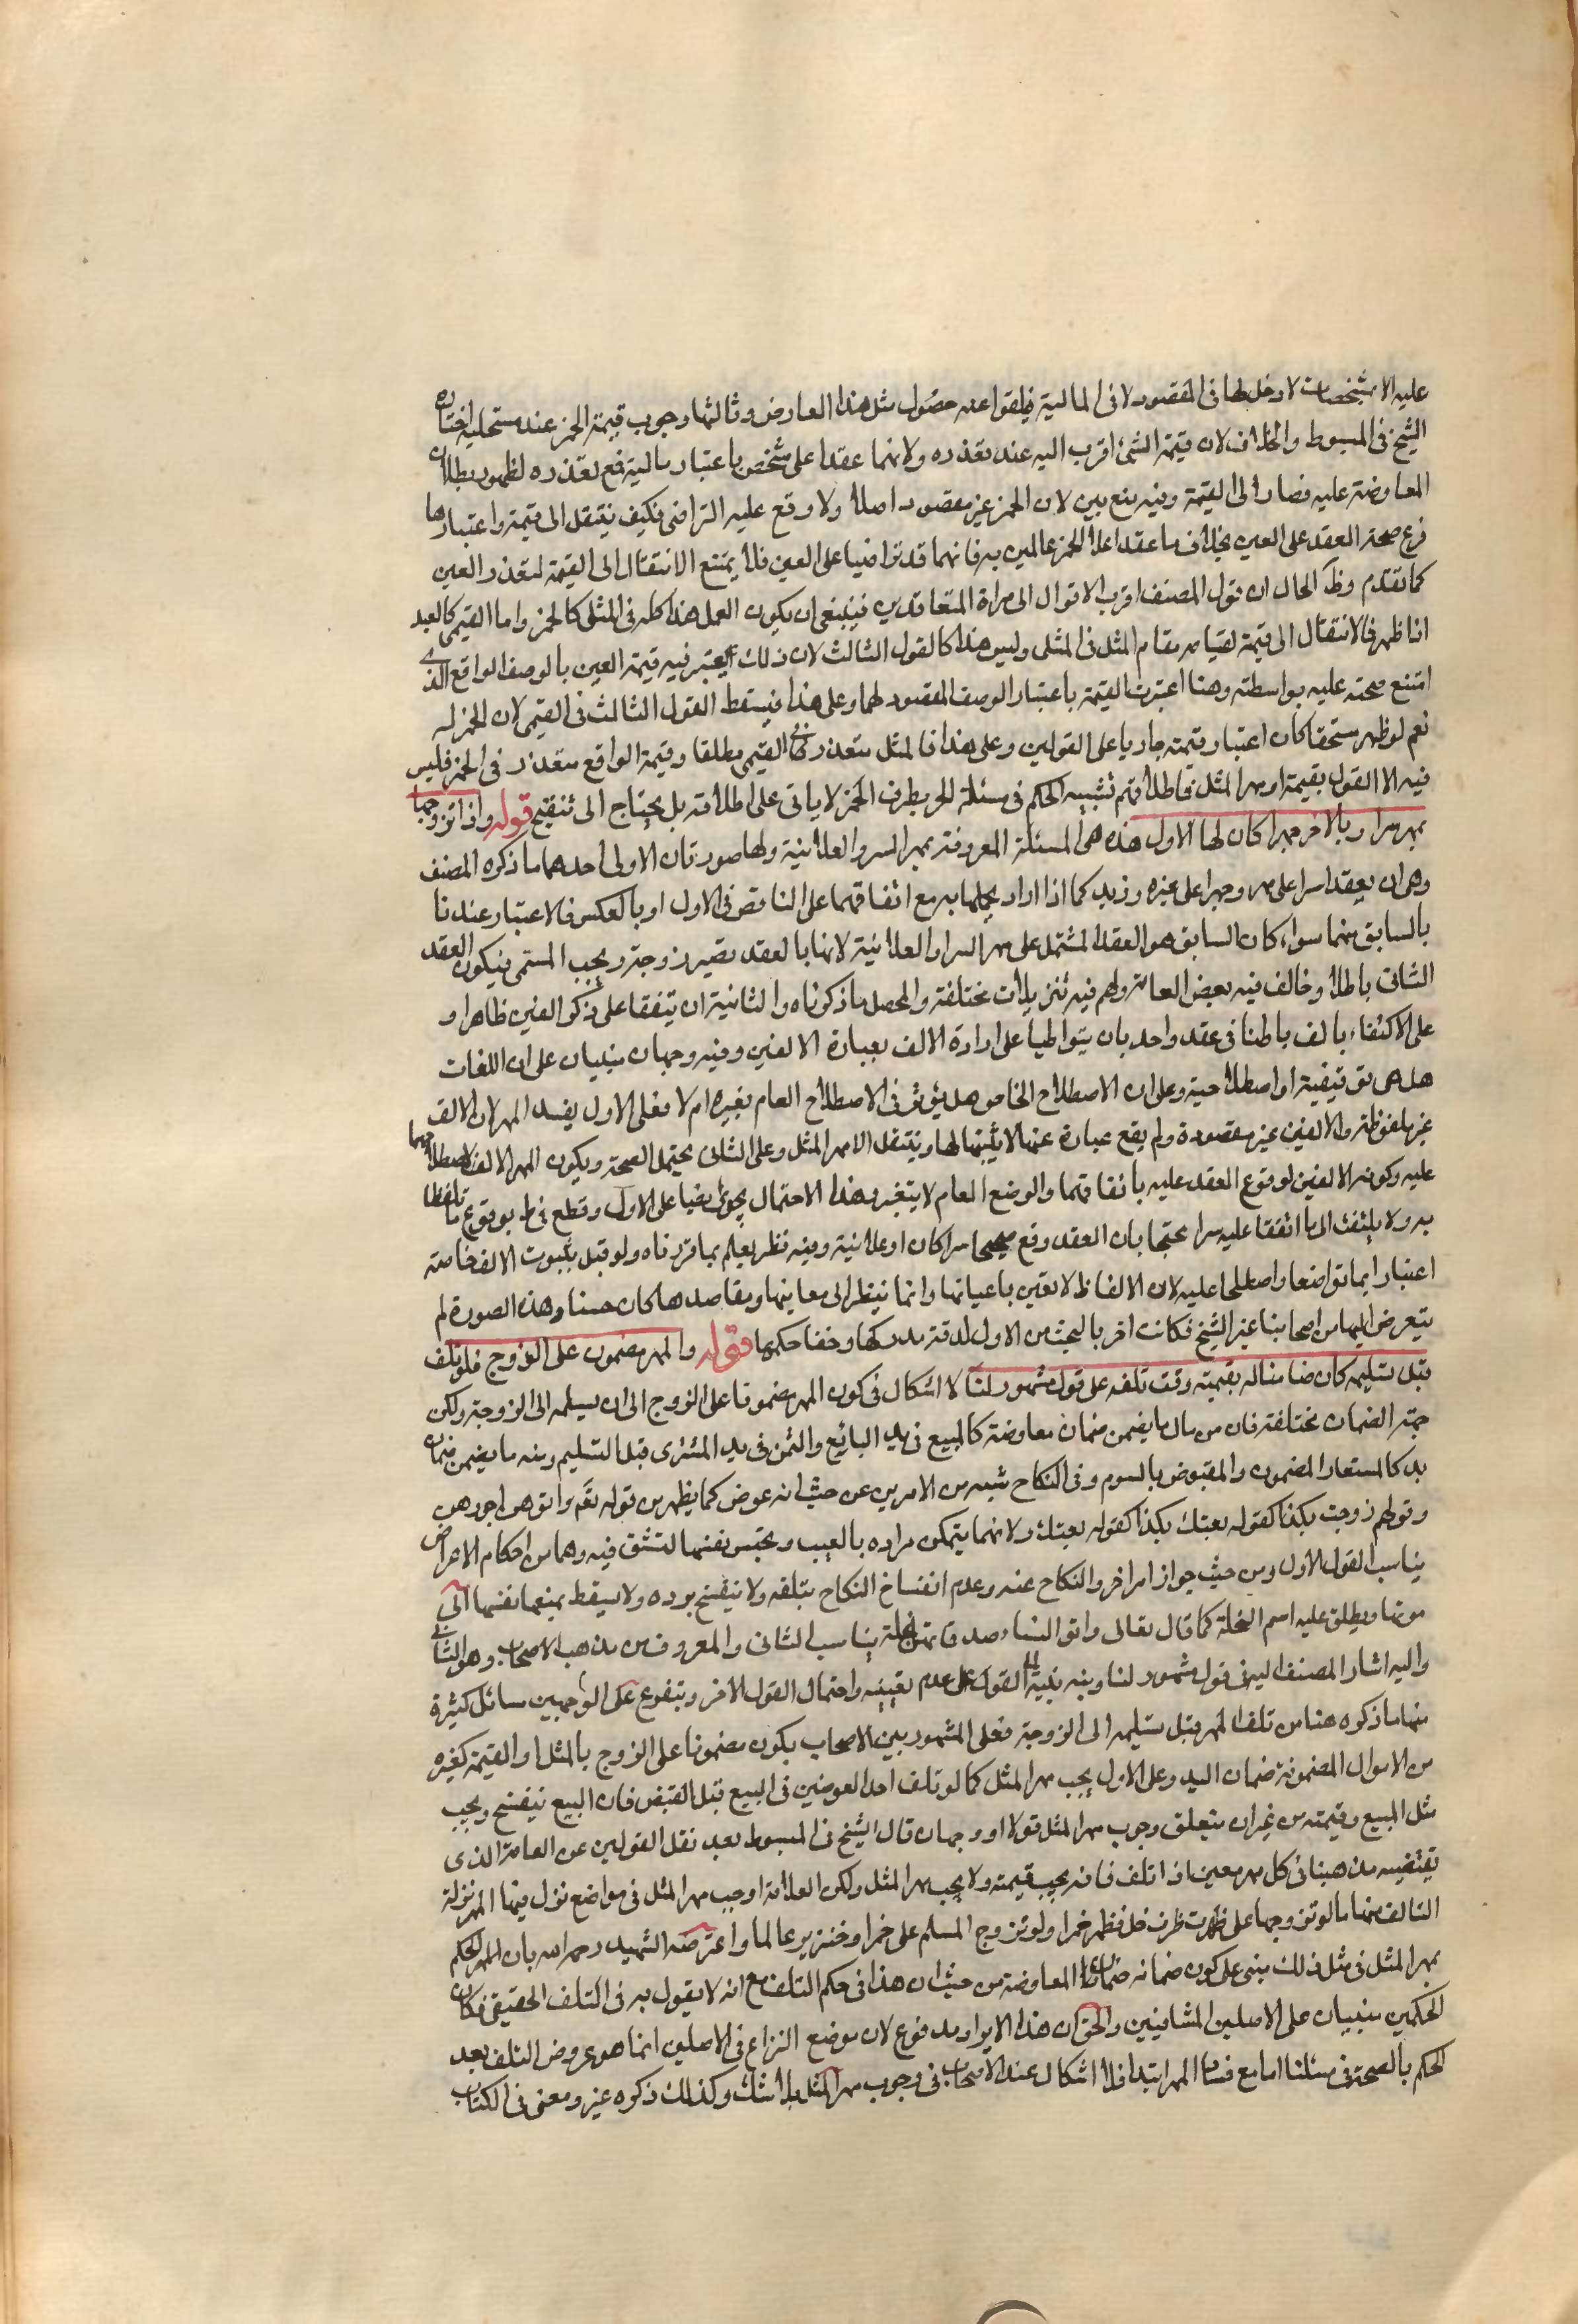 عليه الا مشخصات لا دخل لها فى المقصود لا فى المالية فيلغوا عند حصول مثل هذا العارض وثالثها وجوب قيمة الخمر عند مستحليه اختاره
الشيخ فى المبسوط والخلاف لان قيمة الشئ اقرب اليه عند تعذره ولانهما عقدا على شخص باعتبار مالية فمع تعذره لظهور بطلان
المعاوضة عليه فصار الى القيمة وفيه منع بين لان الخمر غير مقصود اصلا ولا وقع عليه التراضى فكيف ينتقل الى قيمته واعتبارها
فرع صحة العقد على العين بخلاف ما عقدا على الخمر عالمين به فانهما قد تراضيا على العين فلا يمتنع الانتقال الى القيمة لتعذر العين
كما تقدم وظ الحال ان قول المصنف اقرب الاقوال الى مراد المتعاقدين فينبغى ان يكون العمل هذا كله فى المثلى كالخمر واما القيمى كالعبد
اذا ظهر فالانتقال الى قيمته لقيامه مقام المثل فى المثلى وليس هذا كالقول الثالث لان ذلك يعتبر فيه قيمة العين بالوصف الواقع الذى
امتنع صحته عليه بواسطته وهنا اعتبرت القيمة باعتبار الوصف المقصود لهما وعلى هذا فيسقط القول الثالث فى القيمى لان الخمر له
نعم لو ظهر مستحقا كان اعتبار قيمته جاريا على القولين وعلى هذا فالمثل متعذر فى القيمى مطلقا وقيمة الواقع متعذر فى الخمر فليس
فيه الا القول بقيمته او مهر المثل فاطلاقهم تشبيه الحكم فى مسئلة الحر بظرف الخمر لا ياتى على اطلاقه بل يحتاج الى تنقيح قوله واذا تزوجها
بمهر سرا وبالاخر جهرا كان لها الاول هذه هى المسئلة المعروفة بمهر السر والعلانية ولها صورتان الاولى احدهما ما ذكره المصنف
وهى ان يعقدا سرا على مهر وجهرا على غيره وزيد كما اذا اراد تجملها به مع اتفاقهما على الناقص فى الاول او بالعكس فالاعتبار عندنا
بالسابق منهما سواء كان السابق هو العقد المشتمل على مهر السر او العلانية لانها بالعقد تصير زوجته ويجب المسمى فيكون العقد
الثانى باطلا وخالف فيه بعض العامة ولهم فيه تنزيلات مختلفة والمحصل ما ذكرناه والثانية ان يتفقا على ذكر الفين ظاهرا و
على الاكتفاء بالف باطنا فى عقد واحد بان يتواطيا على ارادة الالف بعبارة الالفين وفيه وجهان مبنيان على ان اللغات
هل هى توقيفية او اصطلاحية وعلى ان الاصطلاح الخاص هل يؤثر فى الاصطلاح العام بغيره ام لا فعلى الاول يفسد المهر لان الالف
غير ملفوظة والالفين غير مقصودة ولم يقع عبارة عنها لا يثبتها لها وينتقل الا مهر المثل وعلى الثانى يحتمل الصحة ويكون المهر الالف لاصطلاحهما
عليه وكونه الالفين لوقوع العقد عليه باتفاقهما والوضع العام لا يتغير وهذا الاحتمال يجرى ايضا على الاول وقطع فى ط بوقوع ما تلفظا
به ولا يلتفت الى ما اتفقا عليه سرا محتجا بان العقد وقع صحيحا سرا كان او علانية وفيه نظر يعلم بما قررناه ولو قيل بثبوت الالف خاصة
اعتبارا بما تواضعا واصطلحا عليه لان الالفاظ لا تعين باعيانها وانما ينظر الى معاينها ومقاصدها كان حسنا وهذه الصورة لم
يتعرض اليها من اصحابنا غير الشيخ فكانت احر بالبحث من الاول لدقة مدركها وخفا حكمها قوله والمهر مضمون على الزوج فلو تلف
قبل تسليمه كان ضامنا له بقيمته وقت تلفه على قول مشهور لنا لا اشكال فى كون المهر مضمونا على الزوج الى ان يسلمه الى الزوجة ولكن
جهة الضمان مختلفة فان من مال ما يضمن ضمان معاوضة كالمبيع فى يد البائع والثمن فى يد المشترى قبل التسليم ومنه ما يضمن ضمان
يد كالمستعار المضمون والمقبوض بالسوم وفى النكاح شبه من الامرين عن حيث انه عوض كما يظهر من قوله تع واتوهن اجورهن
وقولهم زوجت بكذا كقوله بعتك بكذا كقوله بعتك ولانهما يتمكن من رده بالعيب وتحبس نفسها لتستوفيه وهما من احكام الاعراض
يناسب القول الاول ومن حيث جواز امر اخر والنكاح عنه وعدم انفساخ النكاح بتلفه ولا ينفسخ برده ولا يسقط بمنعها نفسها الى
موتها ويطلق عليه اسم النحلة كما قال تعالى واتوا النساء صدقاتهن نحلة يناسب الثانى والمعروف من مذهب الاصحاب وهو الثانى
واليه اشار المصنف اليه فى قول مشهور لنا وبنه بنسبة القول على عدم تعينه واحتمال القول الاخر ويتفرع على الوجهين مسائل كثيرة
منها ما ذكره هنا من تلف المهر قبل تسليمه الى الزوجة فعلى المشهور بين الاصحاب يكون مضمونا على الزوج بالمثل او القيمة كغيره
من الاموال المضمونة ضمان اليد وعلى الاول يجب مهر المثل كما لو تلف احد العوضين فى البيع قبل القبض فان البيع ينفسخ ويجب
مثل المبيع وقيمته من غير ان يتعلق وجوب مهر المثل قولا او وجهان قال الشيخ فى المبسوط بعد نقل القولين عن العامة الذى
يقتضيه مذهبنا فى كل مهر معين اذا تلف فانه يجب قيمته ولا يجب مهر المثل ولكن العلامة اوجب مهر المثل فى مواضع نزل فيها المهر منزلة
التالف منها ما لو تزوجها على ظرف خل فظهر خمرا ولو تزوج المسلم على خمر او خنزير عالما واعترضه الشهيد رحمه الله بان الحكم
بمهر المثل فى مثل ذلك مبنى على كون ضمانه ضمان المعاوضة من حيث ان هذا فى حكم التلف مع انه لا يقول به فى التلف الحقيقى فكان
الحكمين مبنيان على الاصلين المتنافيين والحق ان هذا الايراد مدفوع لان موضع النزاع فى الاصلين انما هو عروض التلف بعد
الحكم بالصحة فى مسئلتنا اما مع فساد المهر ابتدا فلا اشكال عند الاصحاب فى وجوب مهر المثل بلا شك وكذلك ذكره غيره ومعنى فى الكتاب